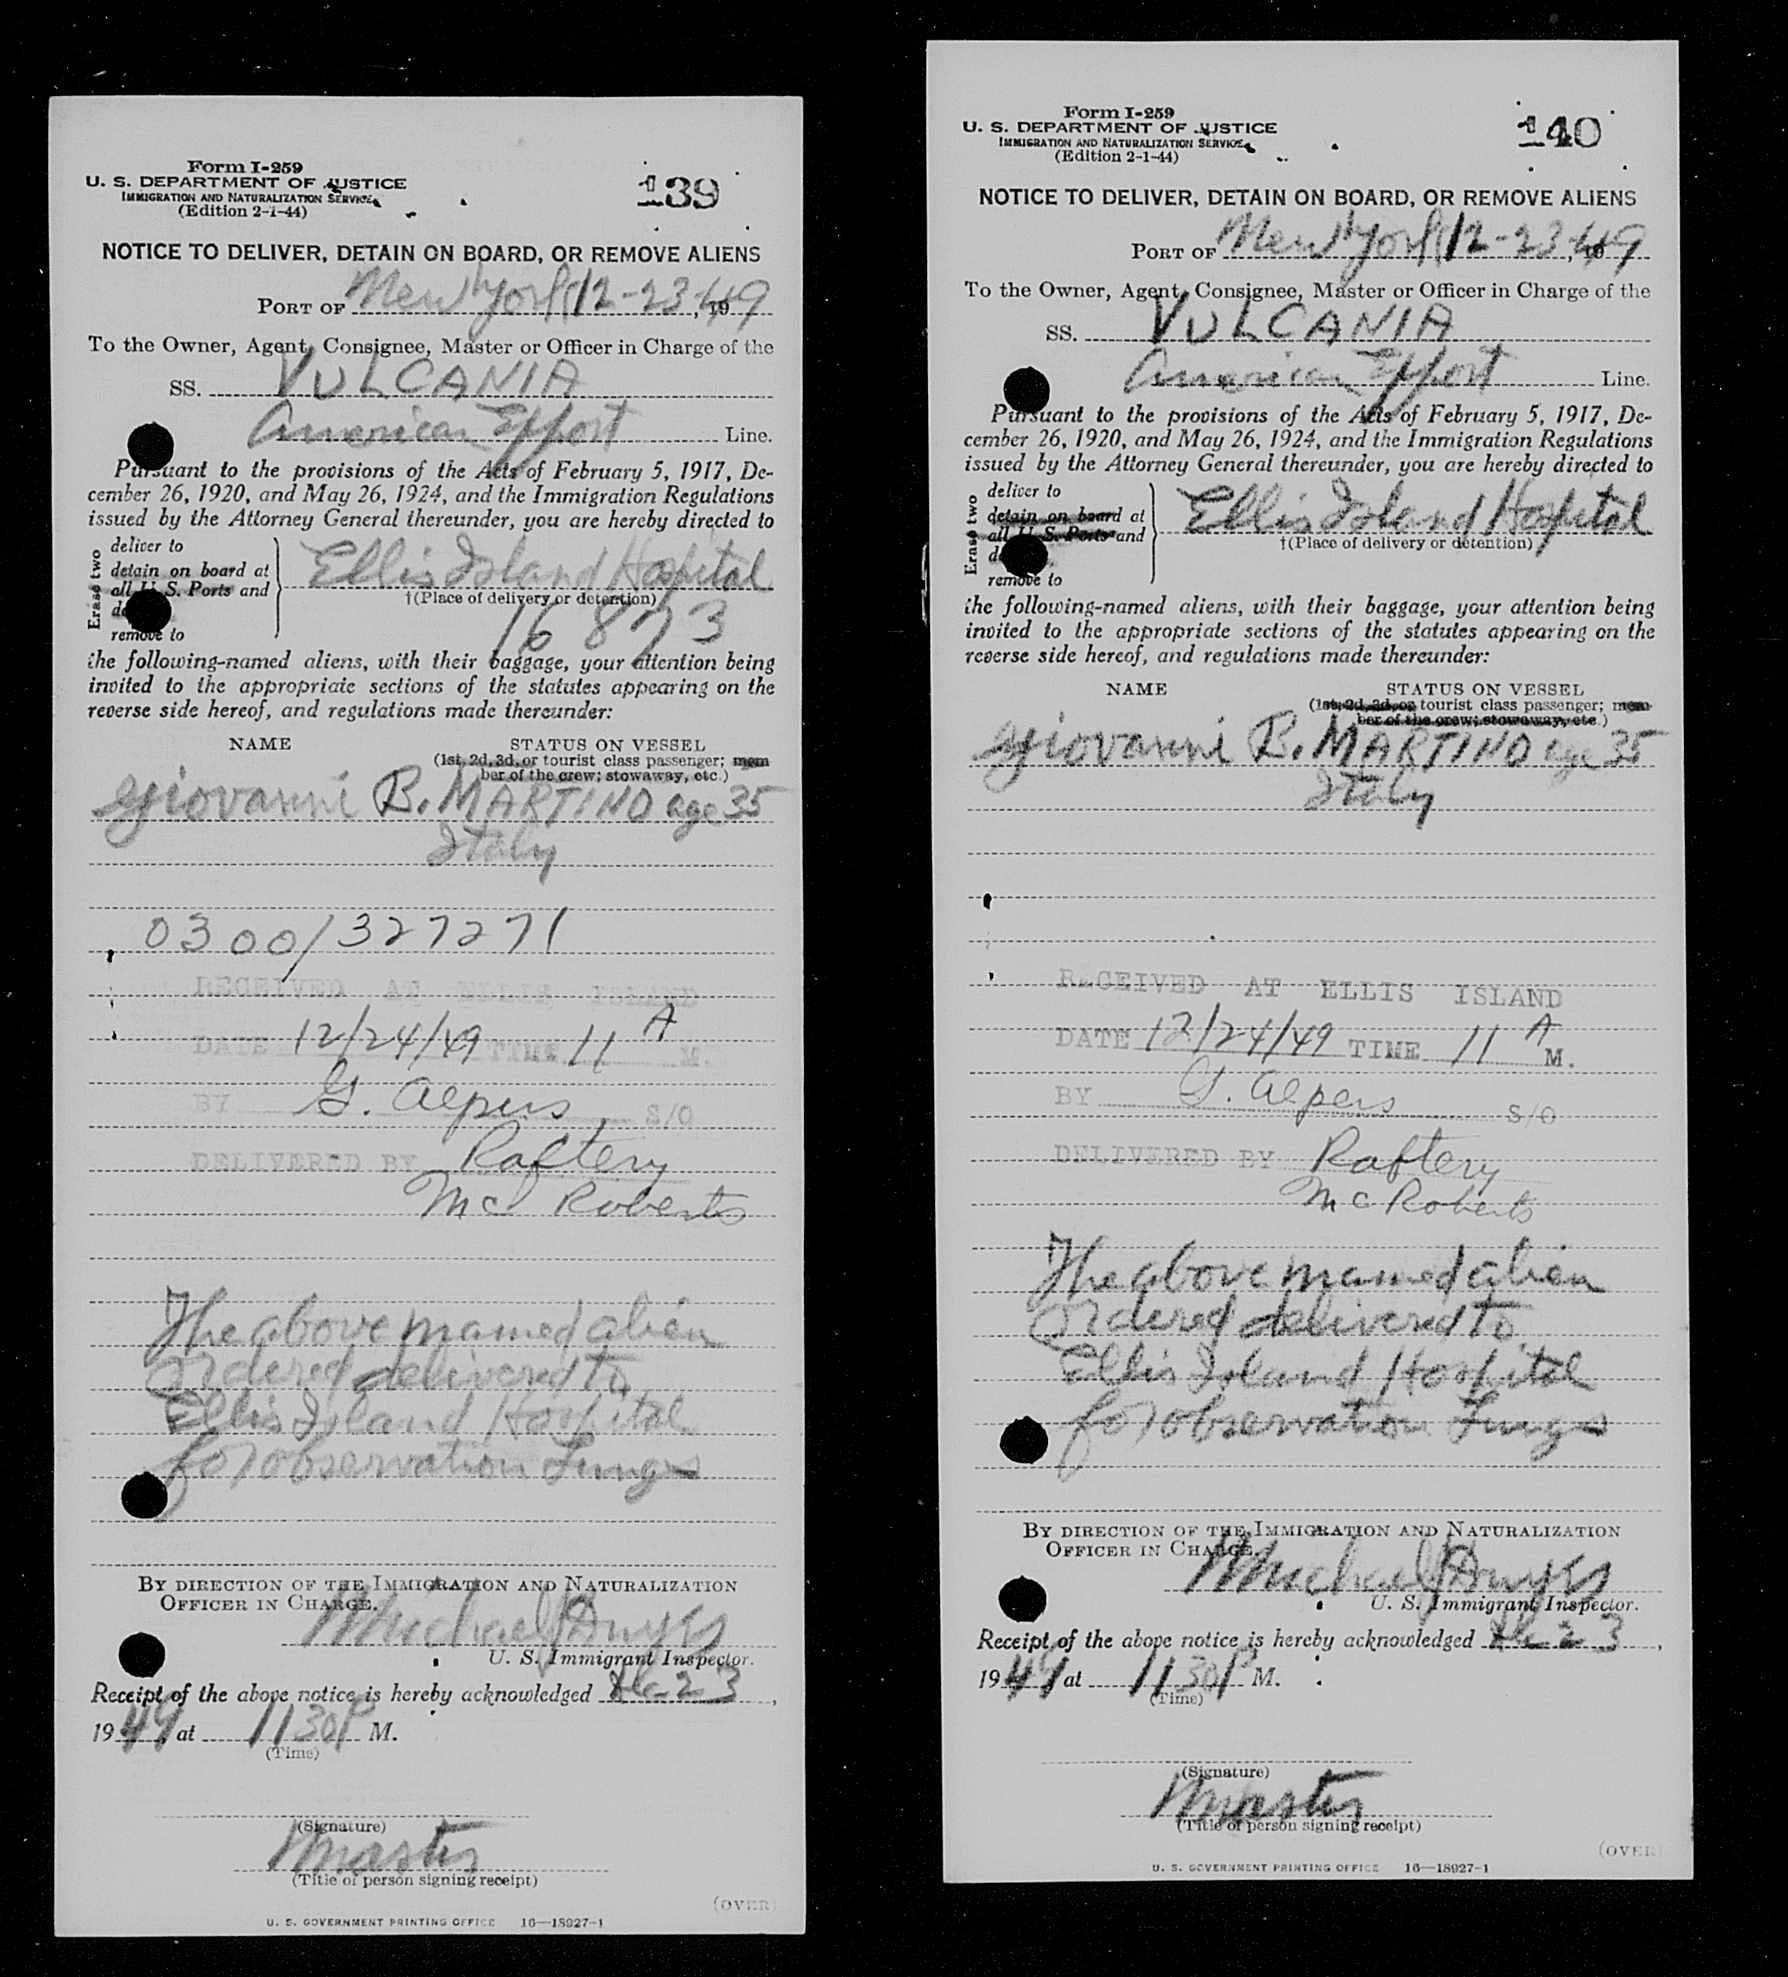 Form I-259
U. S. DEPARTMENT OF JUSTICE
IMMIGRATION AND NATURALIZATION SERVICE
(Edition 2-1-44)
139
NOTICE TO DELIVER, DETAIN ON BOARD, OR REMOVE ALIENS
PORT OF New York 12-23-, 1949
To the Owner, Agent, Consignee, Master or Officer in Charge of the
SS. VULCANIA
American Export Line.
Pursuant to the provisions of the Acts of February 5, 1917, De-
cember 26, 1920, and May 26, 1924, and the Immigration Regulations
issued by the Attorney General thereunder, you are hereby directed to
Erase two
deliver to
detain on board at
all U. S. Ports and
remove to
Ellis Island Hospital
†(Place of delivery or detention)
16873
the following-named aliens, with their baggage, your attention being
invited to the appropriate sections of the statutes appearing on the
reverse side hereof, and regulations made thereunder:
NAME STATUS ON VESSEL
(1st, 2d, 3d, or tourist class passenger; mem
ber of the crew; stowaway, etc.)
Giovanni B. MARTINO age 35
Italy
0300/327271
RECEIVED AT ELLIS ISLAND
DATE 12/24/49 TIME 11 A M.
BY G. Alpers S/O
DELIVERED BY Raftery
McRoberts
The above named alien
ordered delivered to
Ellis Island Hospital
for observation Lungs
BY DIRECTION OF THE IMMIGRATION AND NATURALIZATION
OFFICER IN CHARGE.
Michael Dwyer
U. S. Immigrant Inspector.
Receipt of the above notice is hereby acknowledged Dec 23,
1949 at 1130 P M.
(Time)
(Signature)
Master
(Title of person signing receipt)
(OVER)
U. S. GOVERNMENT PRINTING OFFICE 16—18927-1
Form I-259
U. S. DEPARTMENT OF JUSTICE
IMMIGRATION AND NATURALIZATION SERVICE
(Edition 2-1-44)
140
NOTICE TO DELIVER, DETAIN ON BOARD, OR REMOVE ALIENS
PORT OF New York 12-23-, 1949
To the Owner, Agent, Consignee, Master or Officer in Charge of the
SS. VULCANIA
American Export Line.
Pursuant to the provisions of the Acts of February 5, 1917, De-
cember 26, 1920, and May 26, 1924, and the Immigration Regulations
issued by the Attorney General thereunder, you are hereby directed to
Erase two
deliver to
detain on board at
all U. S. Ports and
remove to
Ellis Island Hospital
†(Place of delivery or detention)
the following-named aliens, with their baggage, your attention being
invited to the appropriate sections of the statutes appearing on the
reverse side hereof, and regulations made thereunder:
NAME STATUS ON VESSEL
(1st, 2d, 3d, or tourist class passenger; mem
ber of the crew; stowaway, etc.)
Giovanni B. MARTINO age 35
Italy
RECEIVED AT ELLIS ISLAND
DATE 12/24/49 TIME 11 A M.
BY G. Alpers S/O
DELIVERED BY Raftery
McRoberts
The above named alien
ordered delivered to
Ellis Island Hospital
for observation Lungs
BY DIRECTION OF THE IMMIGRATION AND NATURALIZATION
OFFICER IN CHARGE.
Michael Dwyer
U. S. Immigrant Inspector.
Receipt of the above notice is hereby acknowledged Dec 23,
1949 at 1130 P M.
(Time)
(Signature)
Master
(Title of person signing receipt)
(OVER)
U. S. GOVERNMENT PRINTING OFFICE 16—18927-1